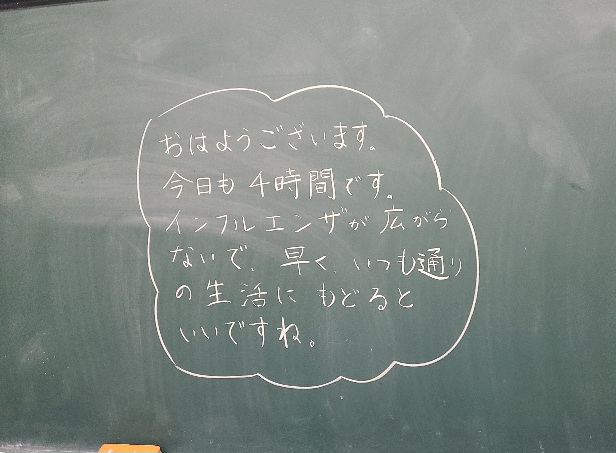 おはようございます。
今日も4時間です。
インフルエンザが広がら
ないで、早く、いつも通り
の生活にもどると
いいですね。